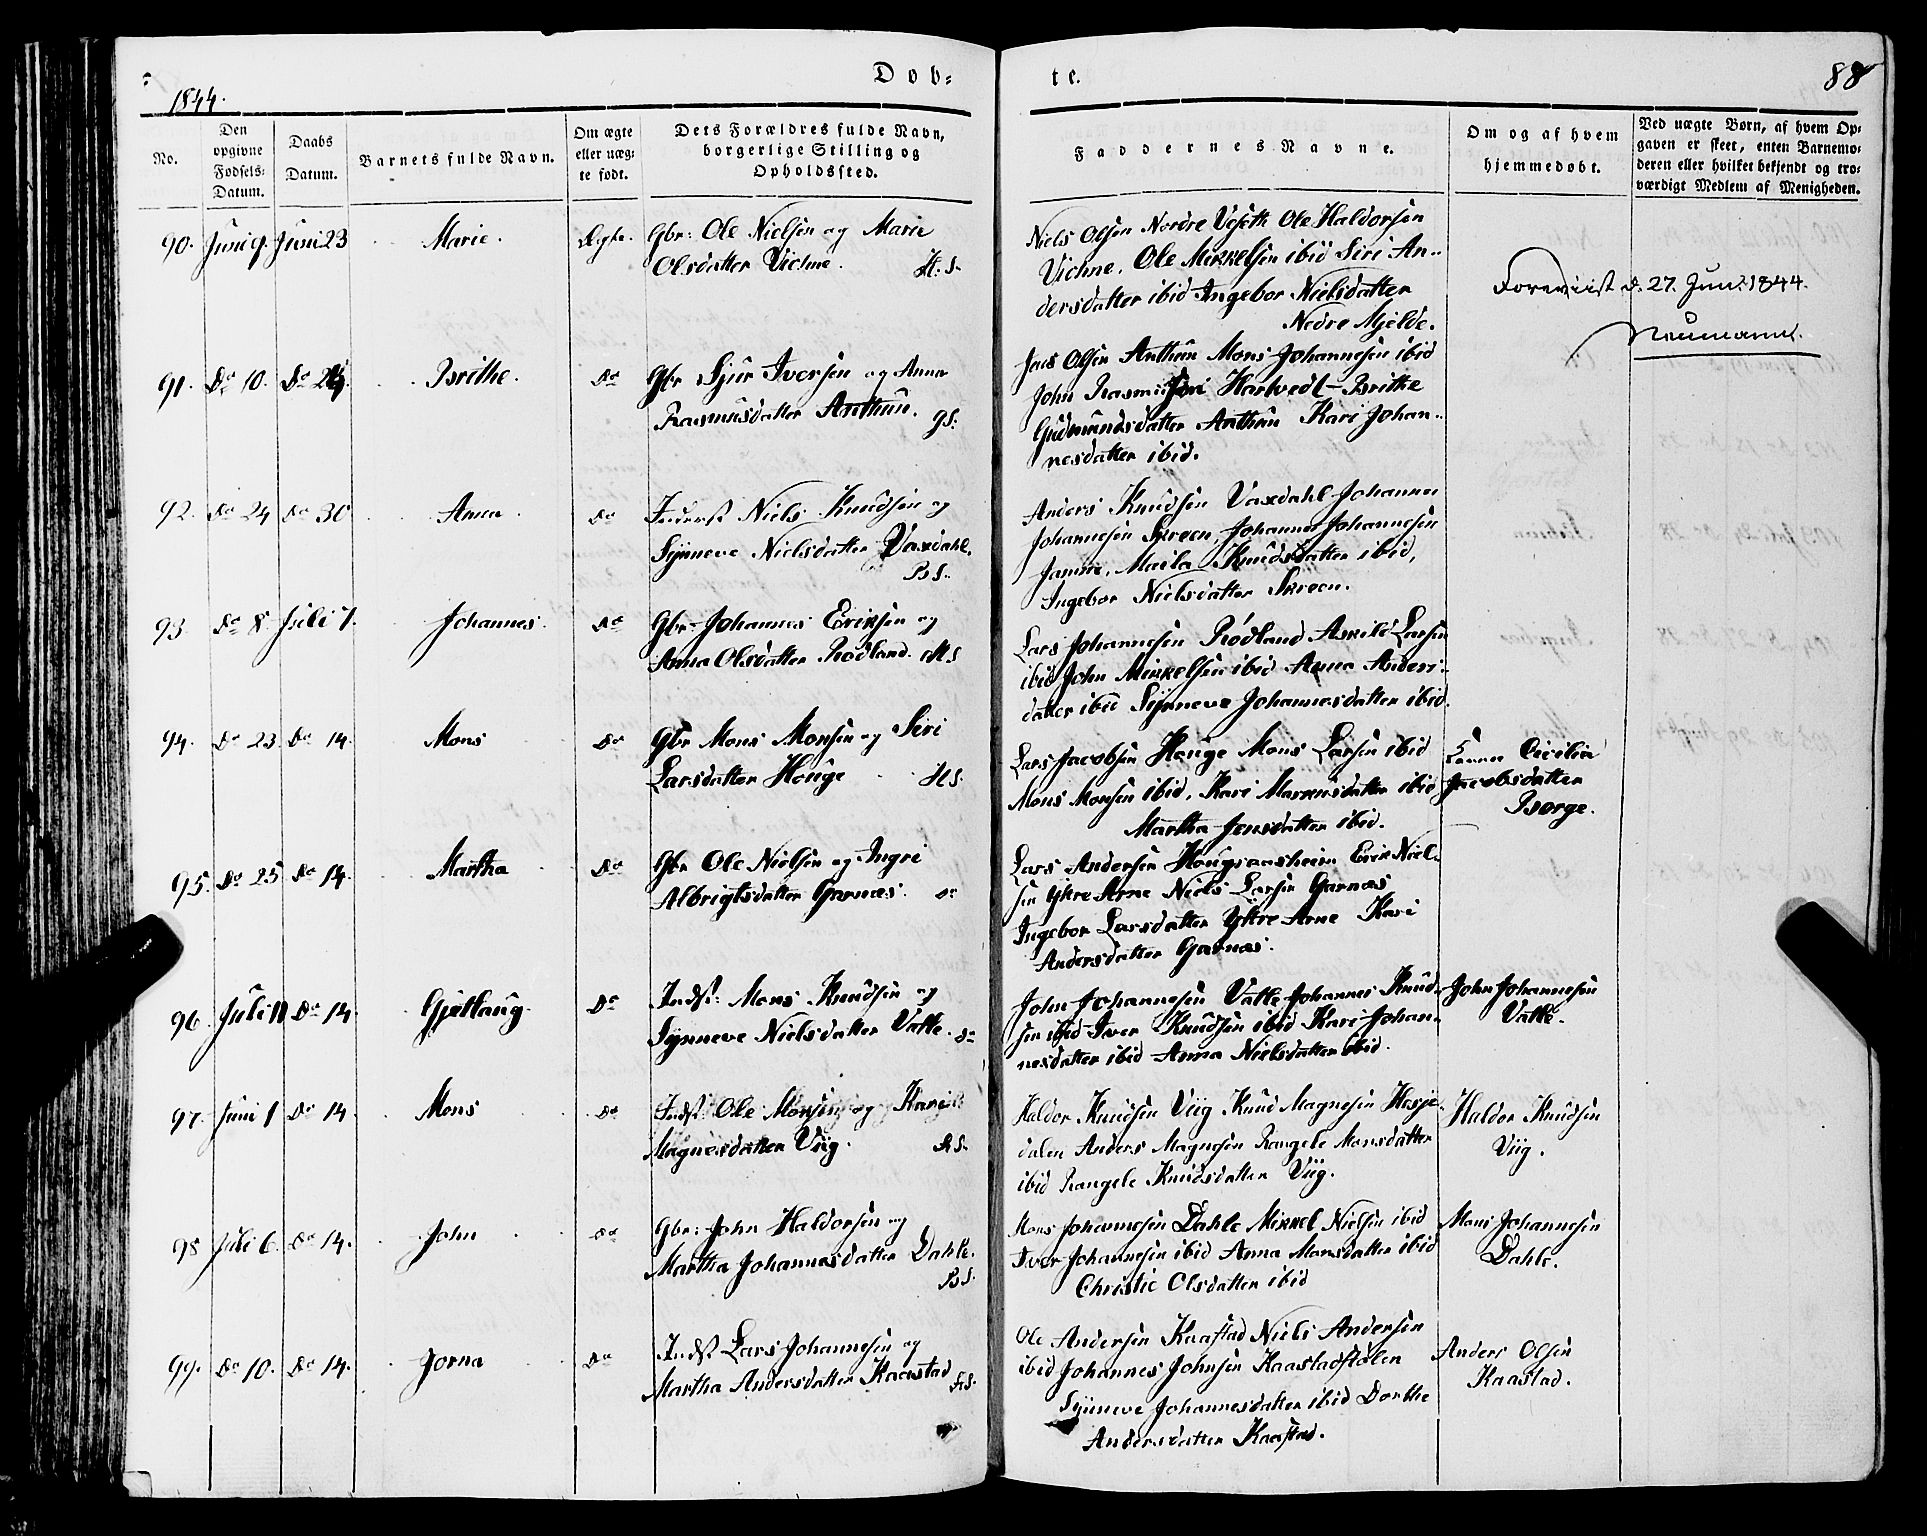 Døb=
te.
88
1844.
No.
Den opgivne Fødsels-Datum.
Daabs Datum.
Barnets fulde Navn.
Om ægte eller uægte født.
Dets Forældres fulde Navn, borgerlige Stilling og Opholdssted.
Faddernes Navne.
Om og af hvem hjemmedøbt.
Ved uægte Børn, af hvem Opgaven er skeet, enten Barnemoderen eller hvilket bekjendt og troværdigt Medlem af Menigheden.
90. Juni 9. Juni 23 Marie. Ægte. Gbr: Ole Nielsen og Marie
Olsdatter Vichne. H.S.
Niels Olsen Nordre Ole Haldorsen
Vichne. Ole Mikkelsen ibid Siri An-
dersdatter ibid Ingebor Nielsdatter
Nedre Mjelde.
Foreviist d. 27. Juni 1844.
Neumann.
91. Do 10. Do Brithe. Do Gbr Sjur Iversen og Anna
Rasmusdatter Anthun. GS.
Jens Olsen Anthun Mons Johannesen ibid
John Rasmussen Hartvedt Brithe
Gudmundsdatter Anthun Kari Johan-
nesdatter ibid.
92. Do 24 Do 30 Anna. Do Inderst Niels Knudsen og
Synneve Nielsdatter Vaxdahl.
BS.
Anders Knudsen Vaxdahl Johannes
Johannesen Skreen, Johannes Johannesen
Jamne, Knudsdatter ibid,
Ingebor Nielsdatter Skreen.
93. Do 8. Juli 7. Johannes. Do Gbr Johannes Eriksen og
Anna Olsdatter Rødland. HS
Lars Johannesen Rødland Askild Larsen
ibid John Mikkelsen ibid Anna Anders-
datter ibid Synneve Johannesdatter ibid.
94. Do 23 Do 14. Mons Do Gbr Mons Monsen og Siri
Larsdatter Houge HS.
Lars Jacobsen Houge Mons Larsen ibid
Mons Monsen ibid, Kari Markusdatter ibid
Martha Jensdatter ibid.
Cicilia
Jacobsdatter
Borge.
95. Do 25 Do 14. Martha Do Gbr Ole Nielsen og Ingri
Albrigtsdatter Garnæs. Do
Lars Andersen Erik Niel-
sen Ytre Arne Niels Larsen Garnæs
Ingebor Larsdatter Ytre Arne Kari
Andersdatter Garnæs.
96. Juli 11 Do 14. Gjøtlaug. Do Indst: Mons Knudsen og
Synneve Nielsdatter Valle. Do
John Johannesen Valle Johannes Knud-
sen ibid Iver Knudsen ibid Kari Johan-
nesdatter ibid Anna Nielsdatter ibid.
John Johannesen
Valle.
97. Juni 1 Do 14. Mons Do Indst: Ole Monsen og Kari
Magnesdatter Viig.
Haldor Knudsen Viig. Knud Magnesen Hesje-
dalen Anders Magnesen Rangele Monsdatter
ibid Rangele Knudsdatter Viig.
Haldor Knudsen
Viig.
98 Juli 6. Do 14. John Do Gbr: John Haldorsen og
Martha Johannesdatter Dahle.
BS.
Mons Johannesen Dahle Mikkel Nielsen ibid
Iver Johannesen ibid Anna Monsdatter ibid
Christie Olsdatter ibid
Mons Johannesen
Dahle.
99. Do 10. Do 14. Jorna Do Indst Lars Johannesen og
Martha Andersdatter Kaastad
Ole Andersen Kaastad Niels Andersen
ibid Johannes Johnsen Kaastadstølen
Synneve Johannesdatter ibid Dorthe
Andersdatter Kaastad.
Anders Olsen
Kaastad.